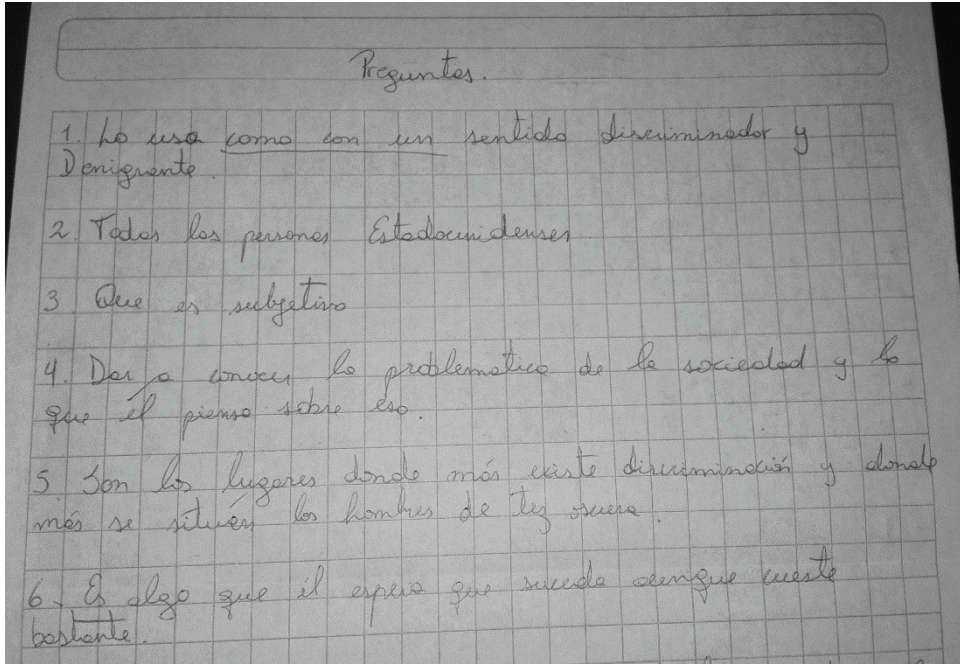 Preguntas.
1. Lo usa como con un sentido discriminador y
Denigrante.
2. Todas las personas Estadounidenses
3. Que es subjetivo
4. Dar a conocer la problematica de la sociedad y lo
que él piensa sobre eso.
5. Son los lugares donde más existe discriminación y donde
más se sitúen los hombres de tez oscura.
6. Es algo que él espera que suceda aunque cueste
bastante.